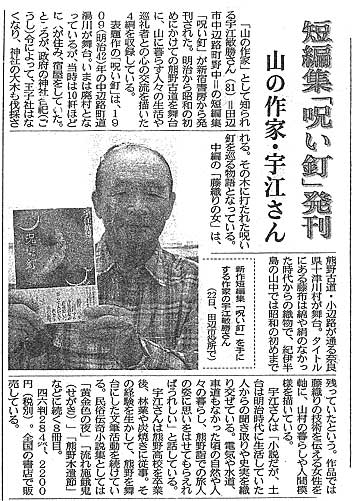 短編集「呪い釘」発刊
山の作家・宇江さん
「山の作家」として知られ
る宇江敏勝さん(81)=田辺
市中辺路町野中=の短編集
「呪い釘」が新宿書房から発
刊された。明治から昭和の初
めにかけての熊野古道を舞台
に、山に暮らす人々の生活や
巡礼者との心の交流を描いた
4編を収録している。
表題作の「呪い釘」は、19
09(明治42)年の中辺路町道
湯川が舞台。いまは廃村とな
っているが、当時は10軒ほど
に人が住み、宿屋をしていた。
ところが、政府の「神社合祀(ご
うし)令」によって、王子社はな
くなり、神社の大木も伐採さ
れる。その木に打たれた呪い
釘を巡る物語となっている。
中編の「藤織りの女」は、
熊野古道・小辺路が通る奈良
県十津川村が舞台。タイトル
にある藤布は綿や絹のなかっ
た時代からの織物で、紀伊半
島の山中では昭和の初めまで
残っていたという。作品では
藤織りの技術を伝える女性を
軸に、山村の暮らしや人間模
様を描いている。
宇江さんは「小説だが、土
台は明治時代に生活していた
人からの聞き取りや史実を織
り交ぜている。電気や水道、
車道もなかった頃の自然や人
々の暮らし、熊野詣での旅人
の姿に思いをはせてもらえれ
ばうれしい」と話している。
宇江さんは熊野高校を卒業
後、林業や炭焼きに従事。そ
の経験を生かして、熊野を舞
台にした文筆活動を続けてい
る。民俗伝奇小説集としては
「黄金色の夜」「流れ施餓鬼
(せがき)」「熊野木遣節」
などに続く8冊目。
四六判284㌻、2200
円(税別)。全国の書店で販
売している。
新作短編集「呪い釘」を手に
する作家の宇江敏勝さん
(22日、田辺市役所で)
呪い釘